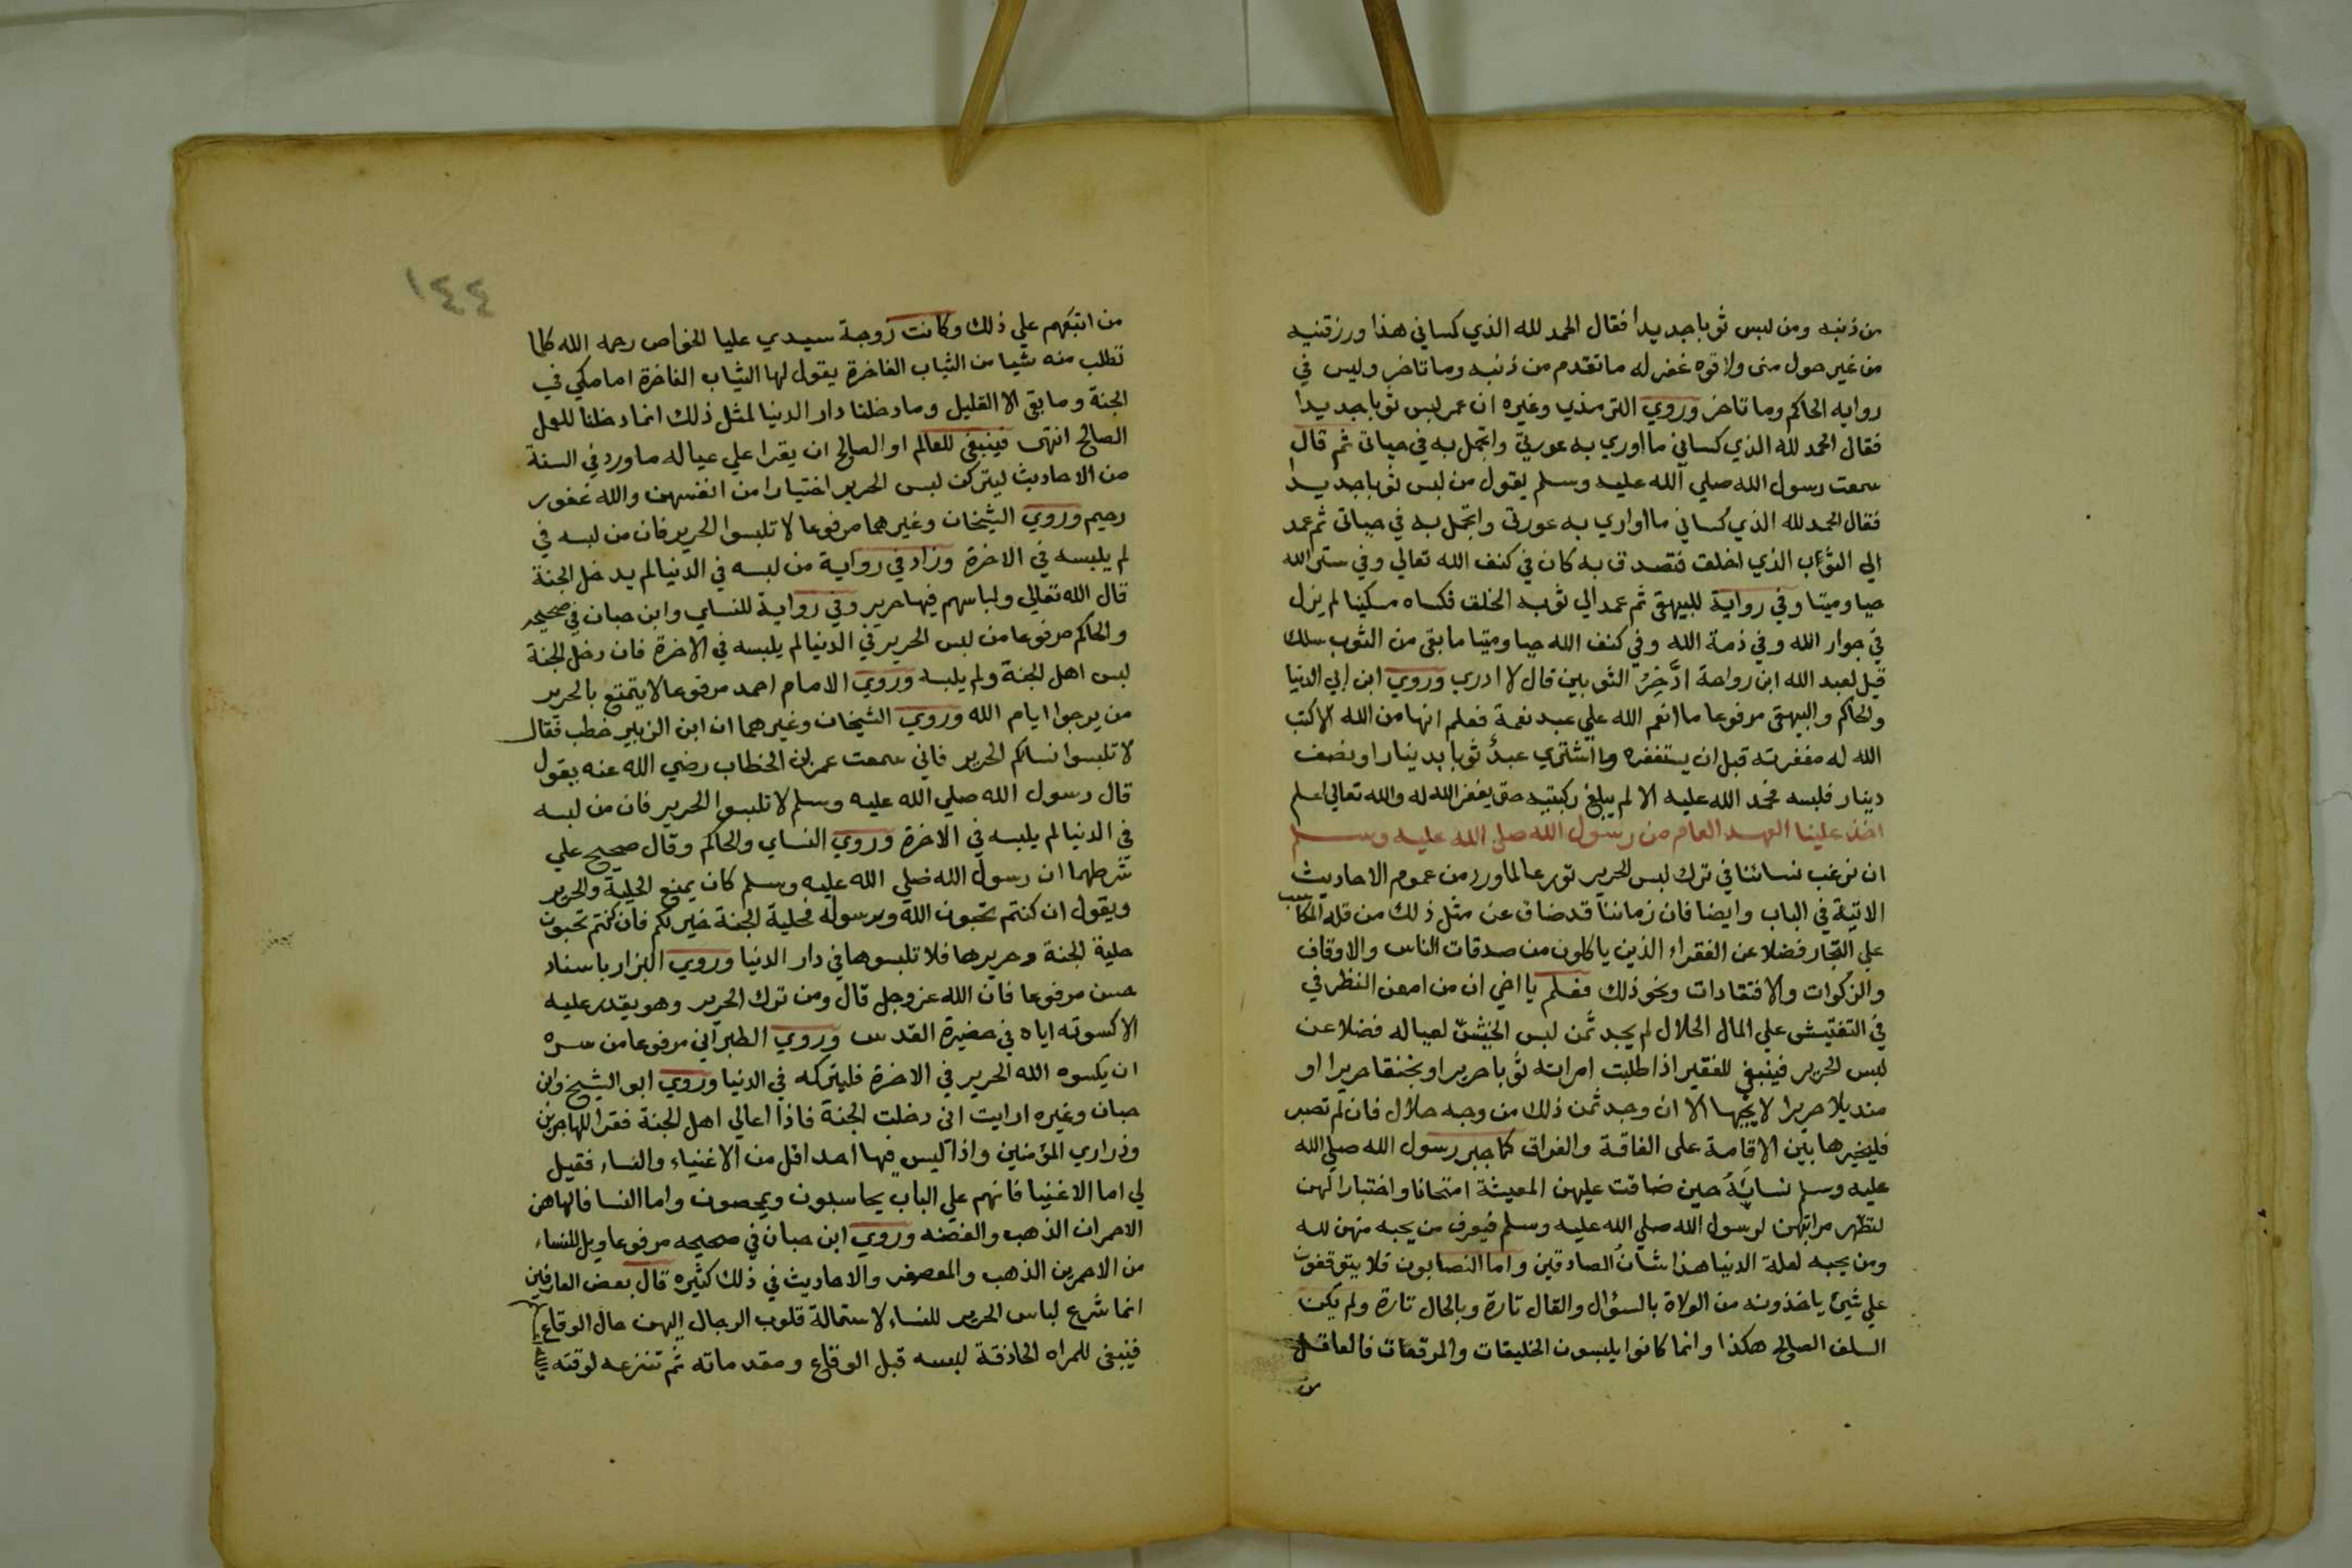 من ذنبه ومن لبس ثوبا جديدا فقال الحمد لله الذي كساني هذا ورزقنيه
من غير حول منى ولا قوه غفر له ما تقدم من ذنبه وما تاخر وليس في
روايه الحاكم وما تاخر وروي الترمذي وغيره ان عمر لبس ثوبا جديدا
فقال الحمد لله الذي كساني ما اوري به عورتي واتجمل به في حياتى ثم قال
سمعت رسول الله صلي الله عليه وسلم يقول من لبس ثوبا جديدا
فقال الحمد لله الذي كساني ما اواري به عورتى واتجمل به في حياتى ثم عمد
الي الثوب الذي اخلت فتصدق به كان في كنف الله تعالي وفي ستر الله
حيا وميتا وفي رواية للبيهقى ثم عمد الي ثوبه الخلق فكساه مسكينا لم يزل
في جوار الله وفي ذمة الله وفي كنف الله حيا وميتا ما بقى من الثوب سلك
قيل لعبد الله ابن رواحة ادَّخِرُ الثوبين قال لا ادري وروي ابن ابي الدنيا
والحاكم والبيهقى مرفوعا ما انعم الله علي عبد نعمة فعلم انها من الله الا كتب
الله له مغفرته قبل ان يستغفره وما اشتري عبدٌ ثوبا بدينار او نصف
دينار فلبسه فحمد الله عليه الا لم يبلغ ركبتيه حتى يغفر الله له والله تعالي اعلم
اخذ علينا العهد العام من رسول الله صلى الله عليه وسلم
ان نرغب نسائنا في ترك لبس الحرير تورعا لما ورد من عموم الاحاديث
الاتية في الباب وايضا فان زماننا قد ضاق عن مثل ذلك من قلة المكاسب
علي التجار فضلا عن الفقراء الذين ياكلون من صدقات الناس والاوقاف
والزكوات والافتقادات ونحو ذلك فعلم يا اخي ان من امعن النظر في
في التفتيش علي المال الحلال لم يجد ثمن لبس الخيش لعياله فضلا عن
لبس الحرير فينبغي للفقير اذا طلبت امراته ثوبا حريرا او بخنقا حريرا او
منديلا حريرا لا يجبها الا ان وجد ثمن ذلك من وجه حلال فان لم تصبر
فليخيرها بين الاقامة على الفاقة والفراق كما جبر رسول الله صلي الله
عليه وسلم نسائِهُ حين ضاقت عليهن المعيشة امتحانا واختبارا لهن
لتظهر مراتبهن لرسول الله صلي الله عليه وسلم فيعرف من يحبه منهن لله
ومن يحبه لعلة الدنيا هذا شان الصادقين واما النصابون فلا يتوقفون
علي شيئ ياخذونه من الولاة بالسؤال والقال تارة وبالحال تارة ولم يكن
السلف الصالح هكذا وانما كانوا يلبسون الخليقات والمرقعات فالعاقل
من
١٤٤
من اتبعهم علي ذلك وكانت زوجة سيدي عليا الخواص رحمه الله كلما
تطلب منه شيا من الثياب الفاخرة يقول لها الثياب الفاخرة امامكي في
الجنة وما بقى الا القليل وما دخلنا دار الدنيا لمثل ذلك انما دخلنا للعمل
الصالح انتهى فينبغى للعالم او الصالح ان يقرا علي عياله ما ورد في السنة
من الاحاديث ليتركن لبس الحرير اختيارا من انفسهن والله غفور
رحيم وروي الشيخان وغيرهما مرفوعا لا تلبسوا الحرير فان من لبسه في
لم يلبسه في الاخرة وزاد في رواية من لبسه في الدنيا لم يدخل الجنة
قال الله تعالي ولباسهم فيها حرير وفي رواية للنساي وابن حبان في صحيحه
والحاكم مرفوعا من لبس الحرير في الدنيا لم يلبسه في الاخرة فان دخل الجنة
لبس اهل الجنة ولم يلبسه وروي الامام احمد مرفوعا لا يتمتع بالحرير
من يرجوا ايام الله وروي الشيخان وغيرهما ان ابن الزبير خطب فقال
لا تلبسوا نساكم الحرير فاني سمعت عمر بن الخطاب رضي الله عنه يقول
قال رسول الله صلي الله عليه وسلم لا تلبسوا الحرير فان من لبسه
في الدنيا لم يلبسه في الاخرة وروي النساي والحاكم وقال صحيح علي
شرطهما ان رسول الله صلي الله عليه وسلم كان يمنع الحلية والحرير
ويقول ان كنتم تحبون الله ورسوله فحلية الجنة خير لكم فان كنتم تحبون
حلية الجنة وحريرها فلا تلبسوها في دار الدنيا وروي البزار باسناد
حسن مرفوعا فان الله عز وجل قال ومن ترك الحرير وهو يقدر عليه
الا كسوته اياه في حضيرة القدس وروي الطبراني مرفوعا من سره
ان يكسوه الله الحرير في الاخرة فليتركه في الدنيا وروي ابو الشيخ وابن
حبان وغيره ارايت انى دخلت الجنة فاذا اعالي اهل الجنة فقرا المهاجرين
وذراري المؤمنين واذا ليس فيها احد اقل من الاغنياء والنساء فقيل
لي اما الاغنيا فانهم علي الباب يحاسبون ويمحصون واما النسا فالهاهن
الاحمران الذهب والفضه وروي ابن حبان في صحيحه مرفوعا ويل للنساء
من الاحمرين الذهب والمعصفر والاحاديث في ذلك كثيره قال بعض العارفين
انما شرع لباس الحرير للنساء لاستمالة قلوب الرجال اليهن حال الوقاع
فينبغى للمراه الحاذقة لبسه قبل الوقاع ومقدماته ثم تنزعه لوقته